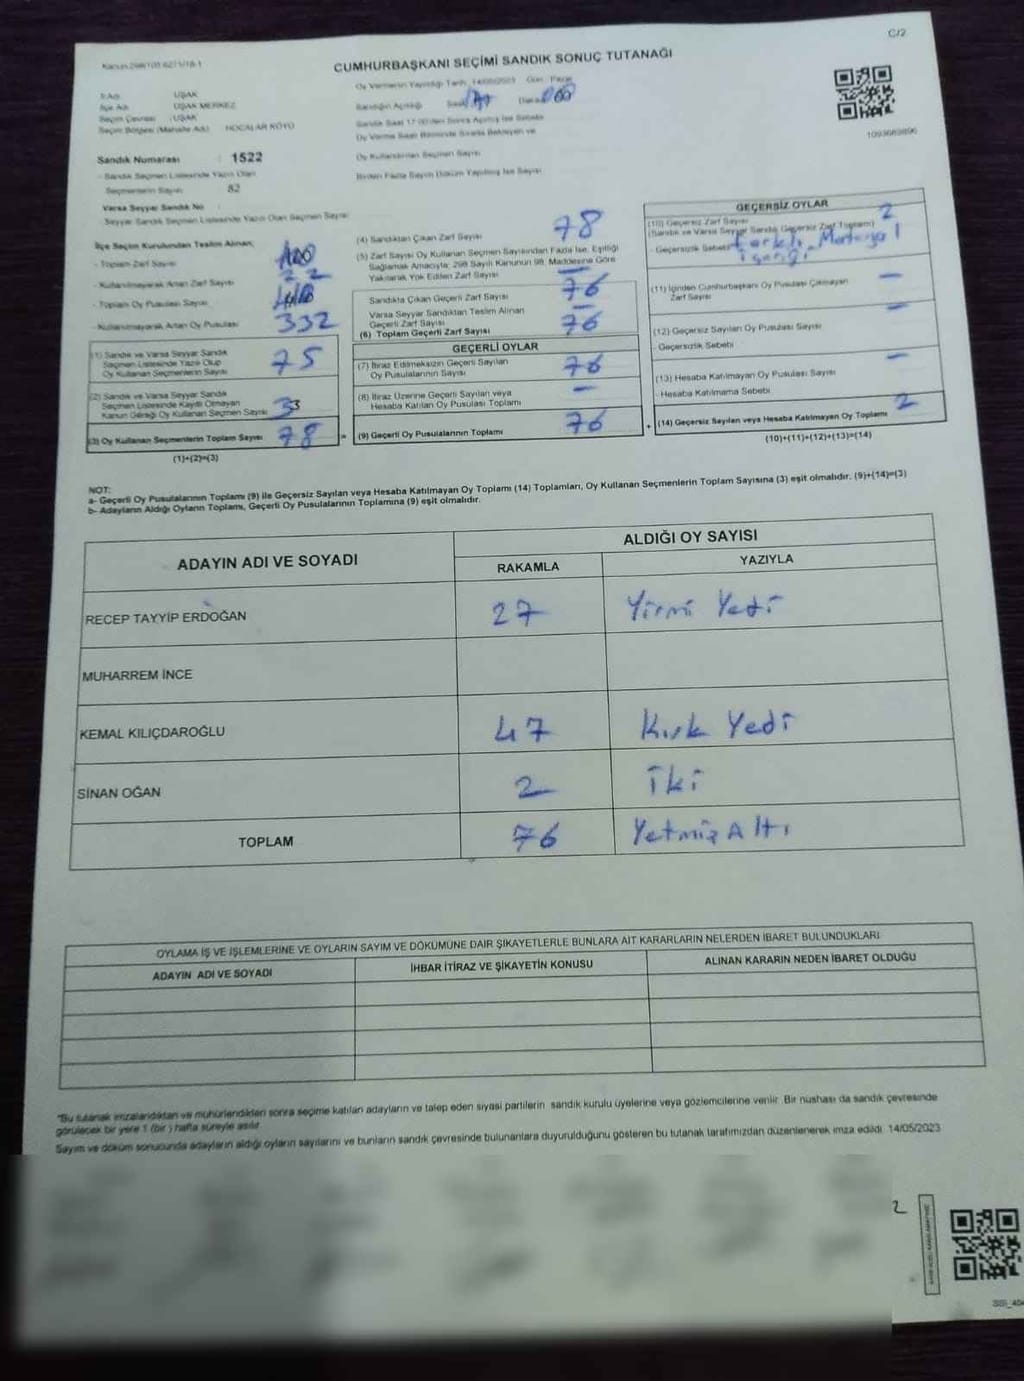 C/2
Kanun 298/105 6271/18-1
CUMHURBAŞKANI SEÇİMİ SANDIK SONUÇ TUTANAĞI
Oy Vermenin Yapıldığı Tarih 14/05/2023 Gün Pazar
İl Adı UŞAK
İlçe Adı UŞAK MERKEZ
Sandığın Açıldığı Saat 17 Dakika 00
Seçim Çevresi UŞAK
Seçim Bölgesi (Mahalle Adı) HOCALAR KÖYÜ
Sandık Saat 17:00'den Sonra Açılmış İse Sebebi
Oy Verme Saati Bitiminde Sırada Bekleyen ve
Oy Kullandırılan Seçmen Sayısı
Birden Fazla Sayım Döküm Yapılmış İse Sayısı
1093683896
Sandık Numarası : 1522
- Sandık Seçmen Listesinde Yazılı Olan
Seçmenlerin Sayısı 82
Varsa Seyyar Sandık No :
Seyyar Sandık Seçmen Listesinde Yazılı Olan Seçmen Sayısı
İlçe Seçim Kurulundan Teslim Alınan;
- Toplam Zarf Sayısı
- Kullanılmayarak Artan Zarf Sayısı 22
- Toplam Oy Pusulası Sayısı
- Kullanılmayarak Artan Oy Pusulası 332
(1) Sandık ve Varsa Seyyar Sandık
Seçmen Listesinde Yazılı Olup
Oy Kullanan Seçmenlerin Sayısı 75
(2) Sandık ve Varsa Seyyar Sandık
Seçmen Listesinde Kayıtlı Olmayan
Kanun Gereği Oy Kullanan Seçmen Sayısı 3
(3) Oy Kullanan Seçmenlerin Toplam Sayısı 78
(1)+(2)=(3)
(4) Sandıktan Çıkan Zarf Sayısı 78
(5) Zarf Sayısı Oy Kullanan Seçmen Sayısından Fazla İse, Eşitliği
Sağlamak Amacıyla; 298 Sayılı Kanunun 98. Maddesine Göre
Yakılarak Yok Edilen Zarf Sayısı —
Sandıkta Çıkan Geçerli Zarf Sayısı 76
Varsa Seyyar Sandıktan Teslim Alınan
Geçerli Zarf Sayısı —
(6) Toplam Geçerli Zarf Sayısı 76
GEÇERLİ OYLAR
(7) İtiraz Edilmeksizin Geçerli Sayılan
Oy Pusulalarının Sayısı 76
(8) İtiraz Üzerine Geçerli Sayılan veya
Hesaba Katılan Oy Pusulası Toplamı —
= (9) Geçerli Oy Pusulalarının Toplamı 76
GEÇERSİZ OYLAR
(10) Geçersiz Zarf Sayısı 2
(Sandık ve Varsa Seyyar Sandık Geçersiz Zarf Toplamı)
- Geçersizlik Sebebi farklı
(11) İçinden Cumhurbaşkanı Oy Pusulası Çıkmayan
Zarf Sayısı —
(12) Geçersiz Sayılan Oy Pusulası Sayısı —
- Geçersizlik Sebebi
(13) Hesaba Katılmayan Oy Pusulası Sayısı —
- Hesaba Katılmama Sebebi
+ (14) Geçersiz Sayılan veya Hesaba Katılmayan Oy Toplamı 2
(10)+(11)+(12)+(13)=(14)
NOT:
a- Geçerli Oy Pusulalarının Toplamı (9) ile Geçersiz Sayılan veya Hesaba Katılmayan Oy Toplamı (14) Toplamları, Oy Kullanan Seçmenlerin Toplam Sayısına (3) eşit olmalıdır. (9)+(14)=(3)
b- Adayların Aldığı Oyların Toplamı, Geçerli Oy Pusulalarının Toplamına (9) eşit olmalıdır.
ADAYIN ADI VE SOYADI ALDIĞI OY SAYISI
RAKAMLA YAZIYLA
RECEP TAYYİP ERDOĞAN 27 Yirmi Yedi
MUHARREM İNCE
KEMAL KILIÇDAROĞLU 47 Kırk Yedi
SİNAN OĞAN 2 İki
TOPLAM 76 Yetmiş Altı
OYLAMA İŞ VE İŞLEMLERİNE VE OYLARIN SAYIM VE DÖKÜMÜNE DAİR ŞİKAYETLERLE BUNLARA AİT KARARLARIN NELERDEN İBARET BULUNDUKLARI
ADAYIN ADI VE SOYADI İHBAR İTİRAZ VE ŞİKAYETİN KONUSU ALINAN KARARIN NEDEN İBARET OLDUĞU
*Bu tutanak imzalandıktan ve mühürlendikten sonra seçime katılan adayların ve talep eden siyasi partilerin sandık kurulu üyelerine veya gözlemcilerine verilir. Bir nüshası da sandık çevresinde
görülecek bir yere 1 (bir) hafta süreyle asılır.
Sayım ve döküm sonucunda adayların aldığı oyların sayılarını ve bunların sandık çevresinde bulunanlara duyurulduğunu gösteren bu tutanak tarafımızdan düzenlenerek imza edildi. 14/05/2023
2